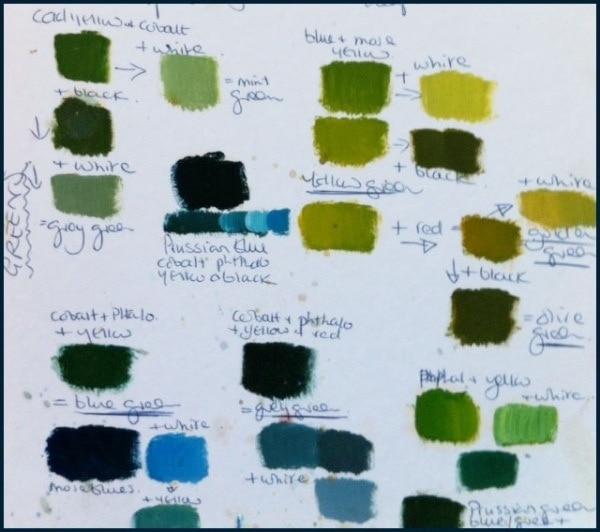 cad yellow + cobalt
+ white
= mint
green
+ black
+ white
= grey green
GREENS
Prussian blue
cobalt phthalo
yellow + black
blue + more
yellow
+ white
+ black
yellow green
+ red =
+ white
green
+ black
= olive
green
cobalt + Phtalo
+ yellow
= blue green
+ white
more blues
+ yellow
cobalt + phthalo
+ yellow + red
= grey green
+ white
Phtal + yellow
+ white
Prussian green
blue green +